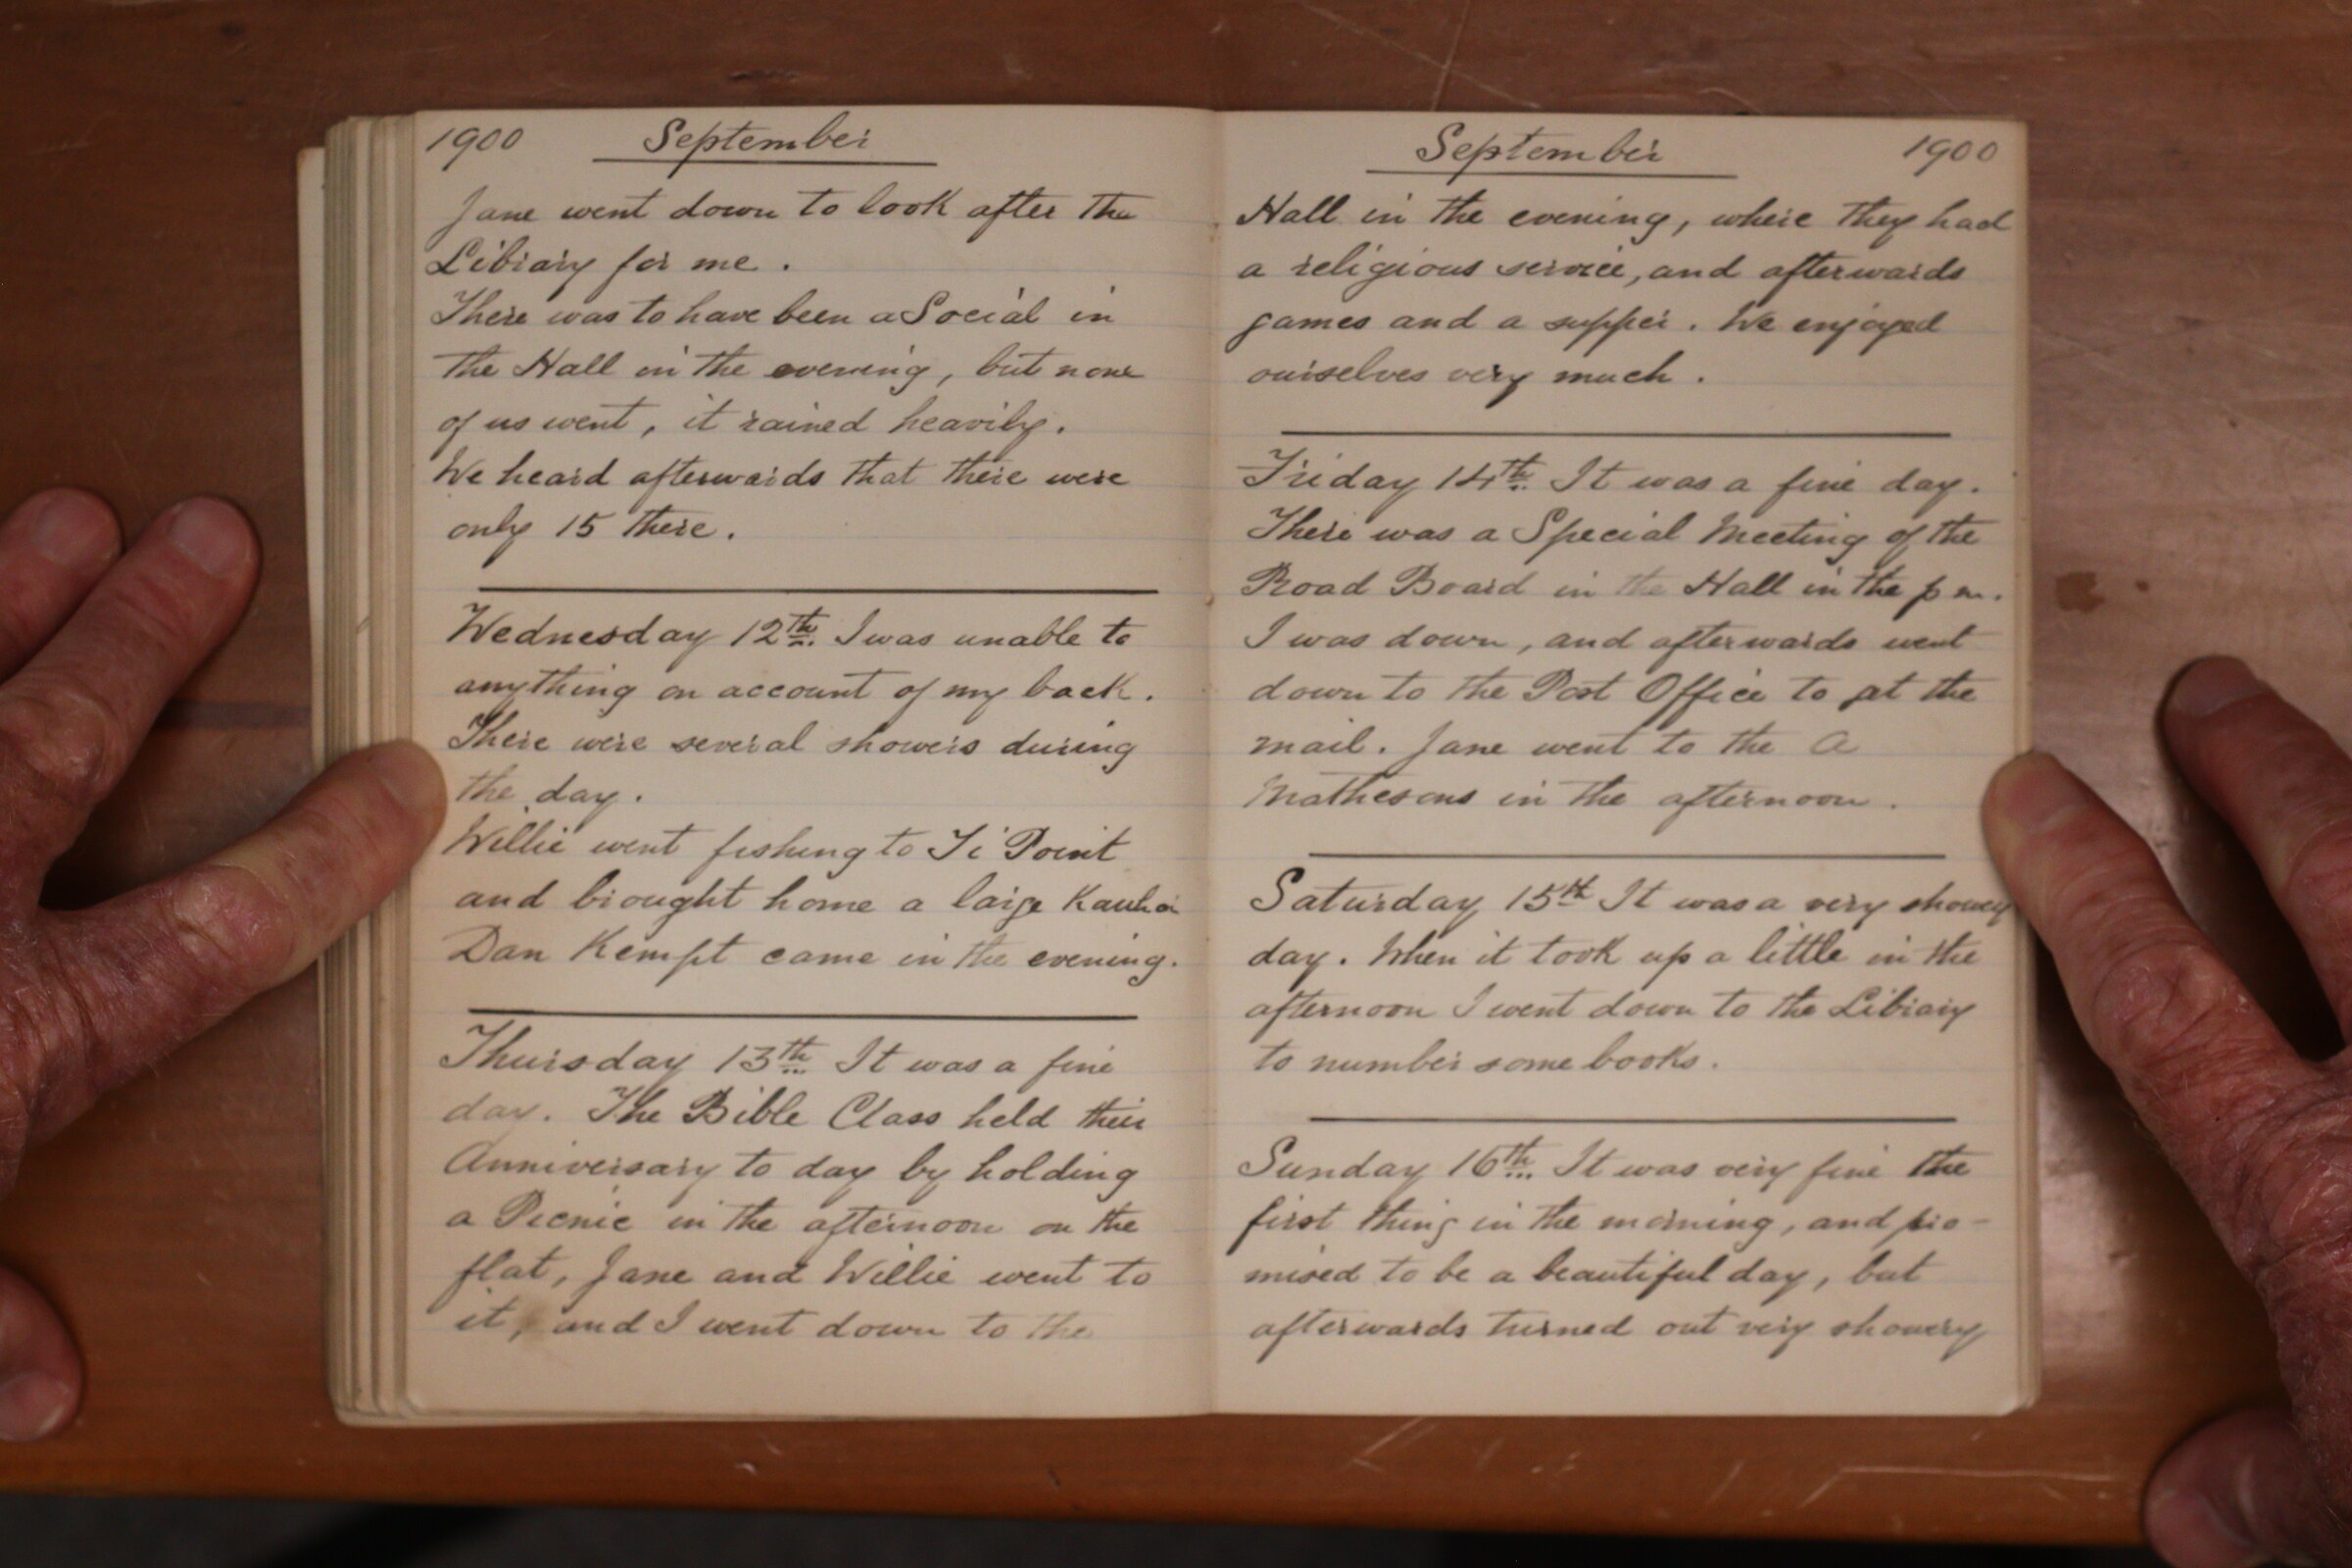 1900 September
Jane went down to look after the
Library for me .
There was to have been a Social in
the Hall in the evening , but none
of us went , it rained heavily .
We heard afterwards that there were
only 15 there .
Wednesday 12th. I was unable to
anything on account of my back .
There were several showers during
the day .
Willie went fishing to Ti Point
and brought home a large
Dan Kempt came in the evening .
Thursday 13th. It was a fine
day . The Bible Class held their
Anniversary to day by holding
a Picnic in the afternoon on the
flat , Jane and Willie went to
it , and I went down to the
September 1900
Hall in the evening , where they had
a religious service , and afterwards
games and a supper . We enjoyed
ourselves very much .
Friday 14th. It was a fine day .
There was a Special Meeting of the
Road Board in the Hall in the p m .
I was down , and afterwards went
down to the Post Office to get the
mail . Jane went to the A
Mathesons in the afternoon .
Saturday 15th It was a very showery
day . When it took up a little in the
afternoon I went down to the Library
to number some books .
Sunday 16th. It was very fine the
first thing in the morning , and pro-
mised to be a beautiful day , but
afterwards turned out very showery